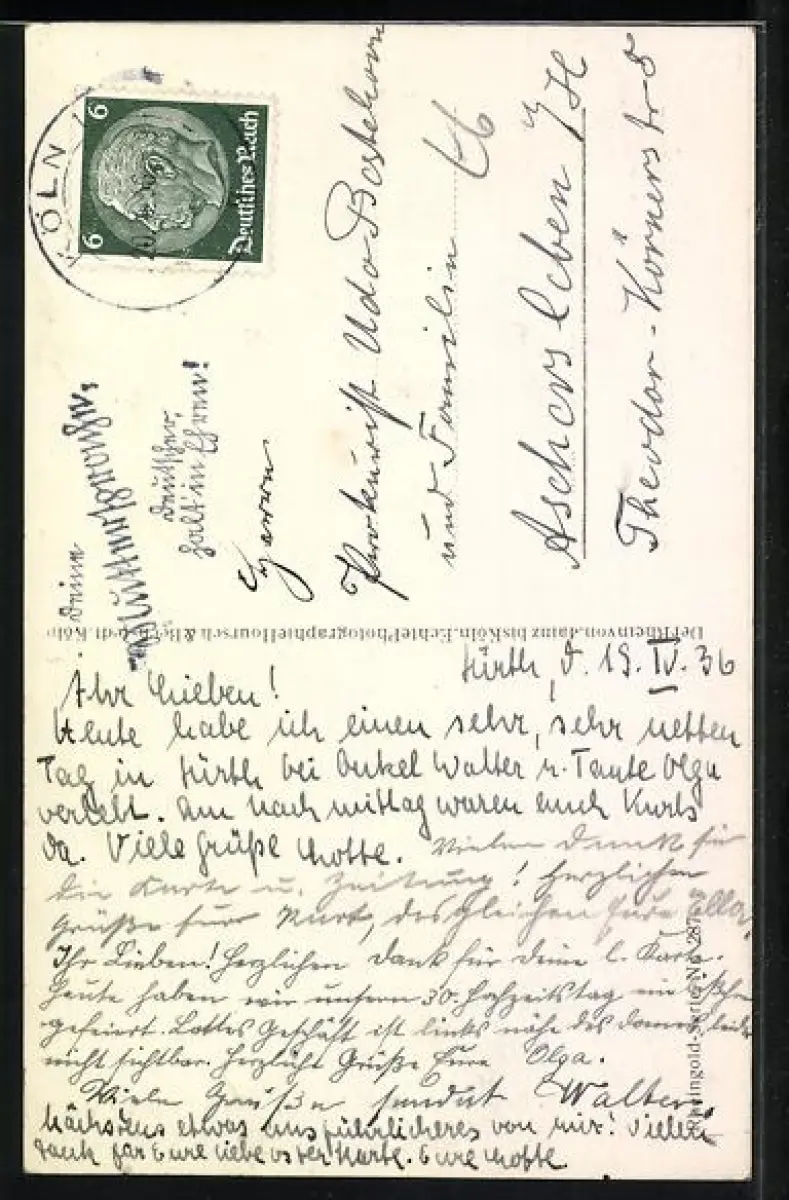 KÖLN
6 6
Deutsches Reich
Deine
Muttersprache,
Deutscher,
halt in Ehren!
Herrn
Prokurist Udo Bestehorn
und Familie
Aschersleben
Theodor-Körnerstr 8
Der Rhein von Mainz bis Köln. Echte Photographie Hoursch & Bechstedt, Köln
Hürth, d. 19. IV. 36
Ihr Lieben!
Heute habe ich einen sehr, sehr netten
Tag in Hürth bei Onkel Walter u. Tante Olga
verlebt. Am Nachmittag waren auch Kurts
da. Viele Grüße Lotte. Vielen Dank für
die Karte u. Zeitung! Herzlichen
Kurt, desgleichen Eure Ella.
Ihr Lieben! Herzlichen Dank für Deine l. Karte.
Heute haben wir unsern 30. Hochzeitstag
gefeiert. Lottes Geschäft ist links nähe des Domes, leider
nicht sichtbar. Herzliche Grüße Eure Olga.
Viele Grüße sendet Walter
Nächstens etwas ausführlicheres von mir! Vielen
Dank für Eure liebe Osterkarte. Eure Lotte
Rheingold-Serie Nr. 287